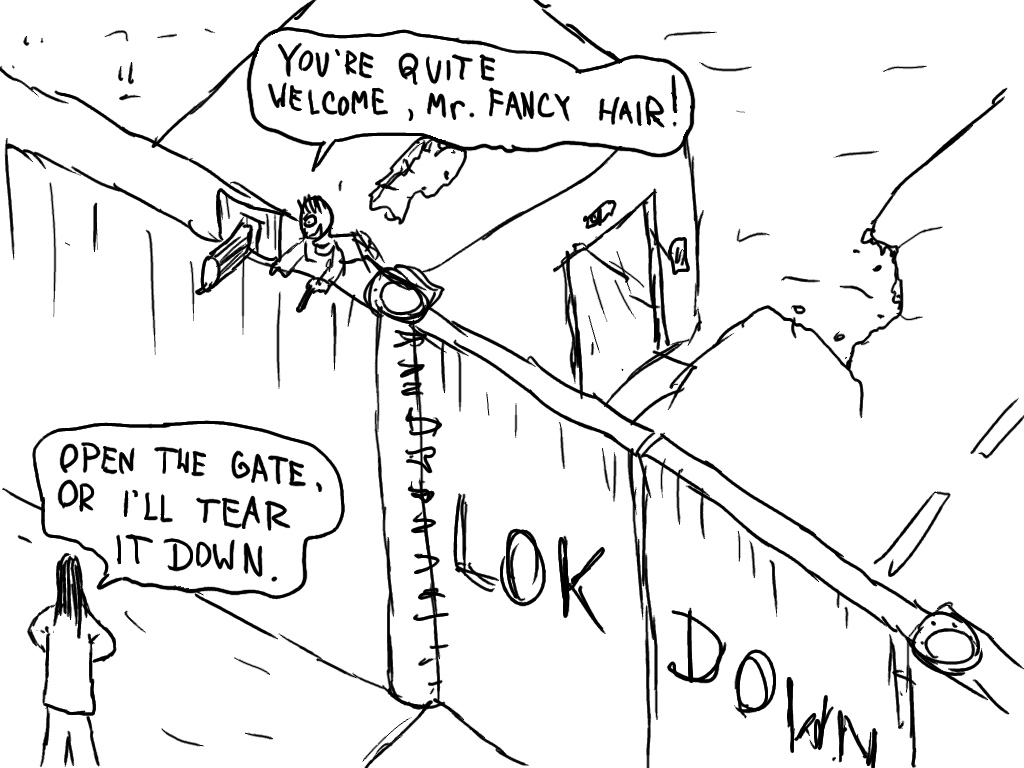 YOU'RE QUITE
WELCOME, Mr. FANCY HAIR!
OPEN THE GATE,
OR I'LL TEAR
IT DOWN.
LOK
DOWN